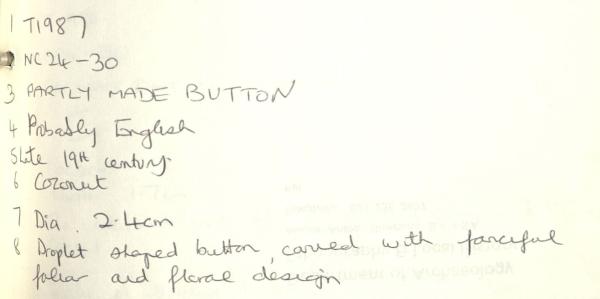 1 T1987
2 NC24-30
3 PARTLY MADE BUTTON
4 Probably English
5 late 19th century
6 Coconut
7 Dia. 2.4cm
8 Droplet shaped button, carved with fanciful
foliar and floral design